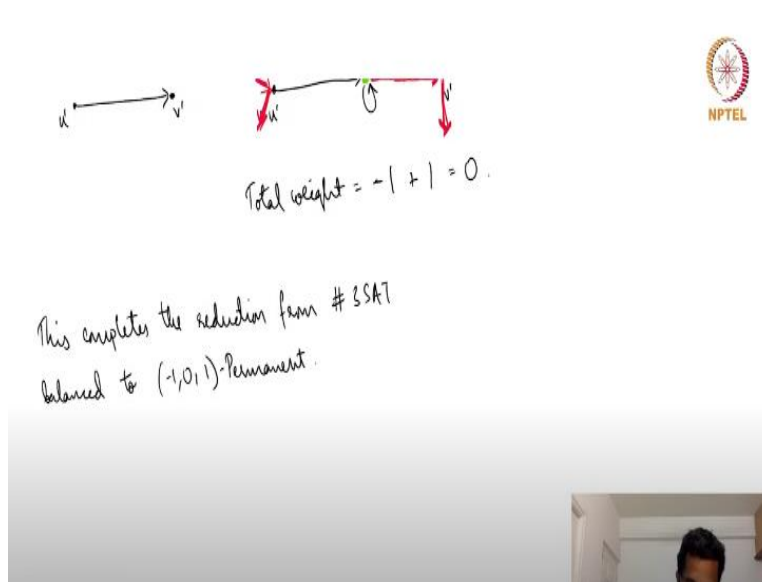 u' v' u' v'
NPTEL
Total weight = -1 + 1 = 0.
This completes the reduction from # 3SAT
balanced to (-1,0,1)-Permanent.